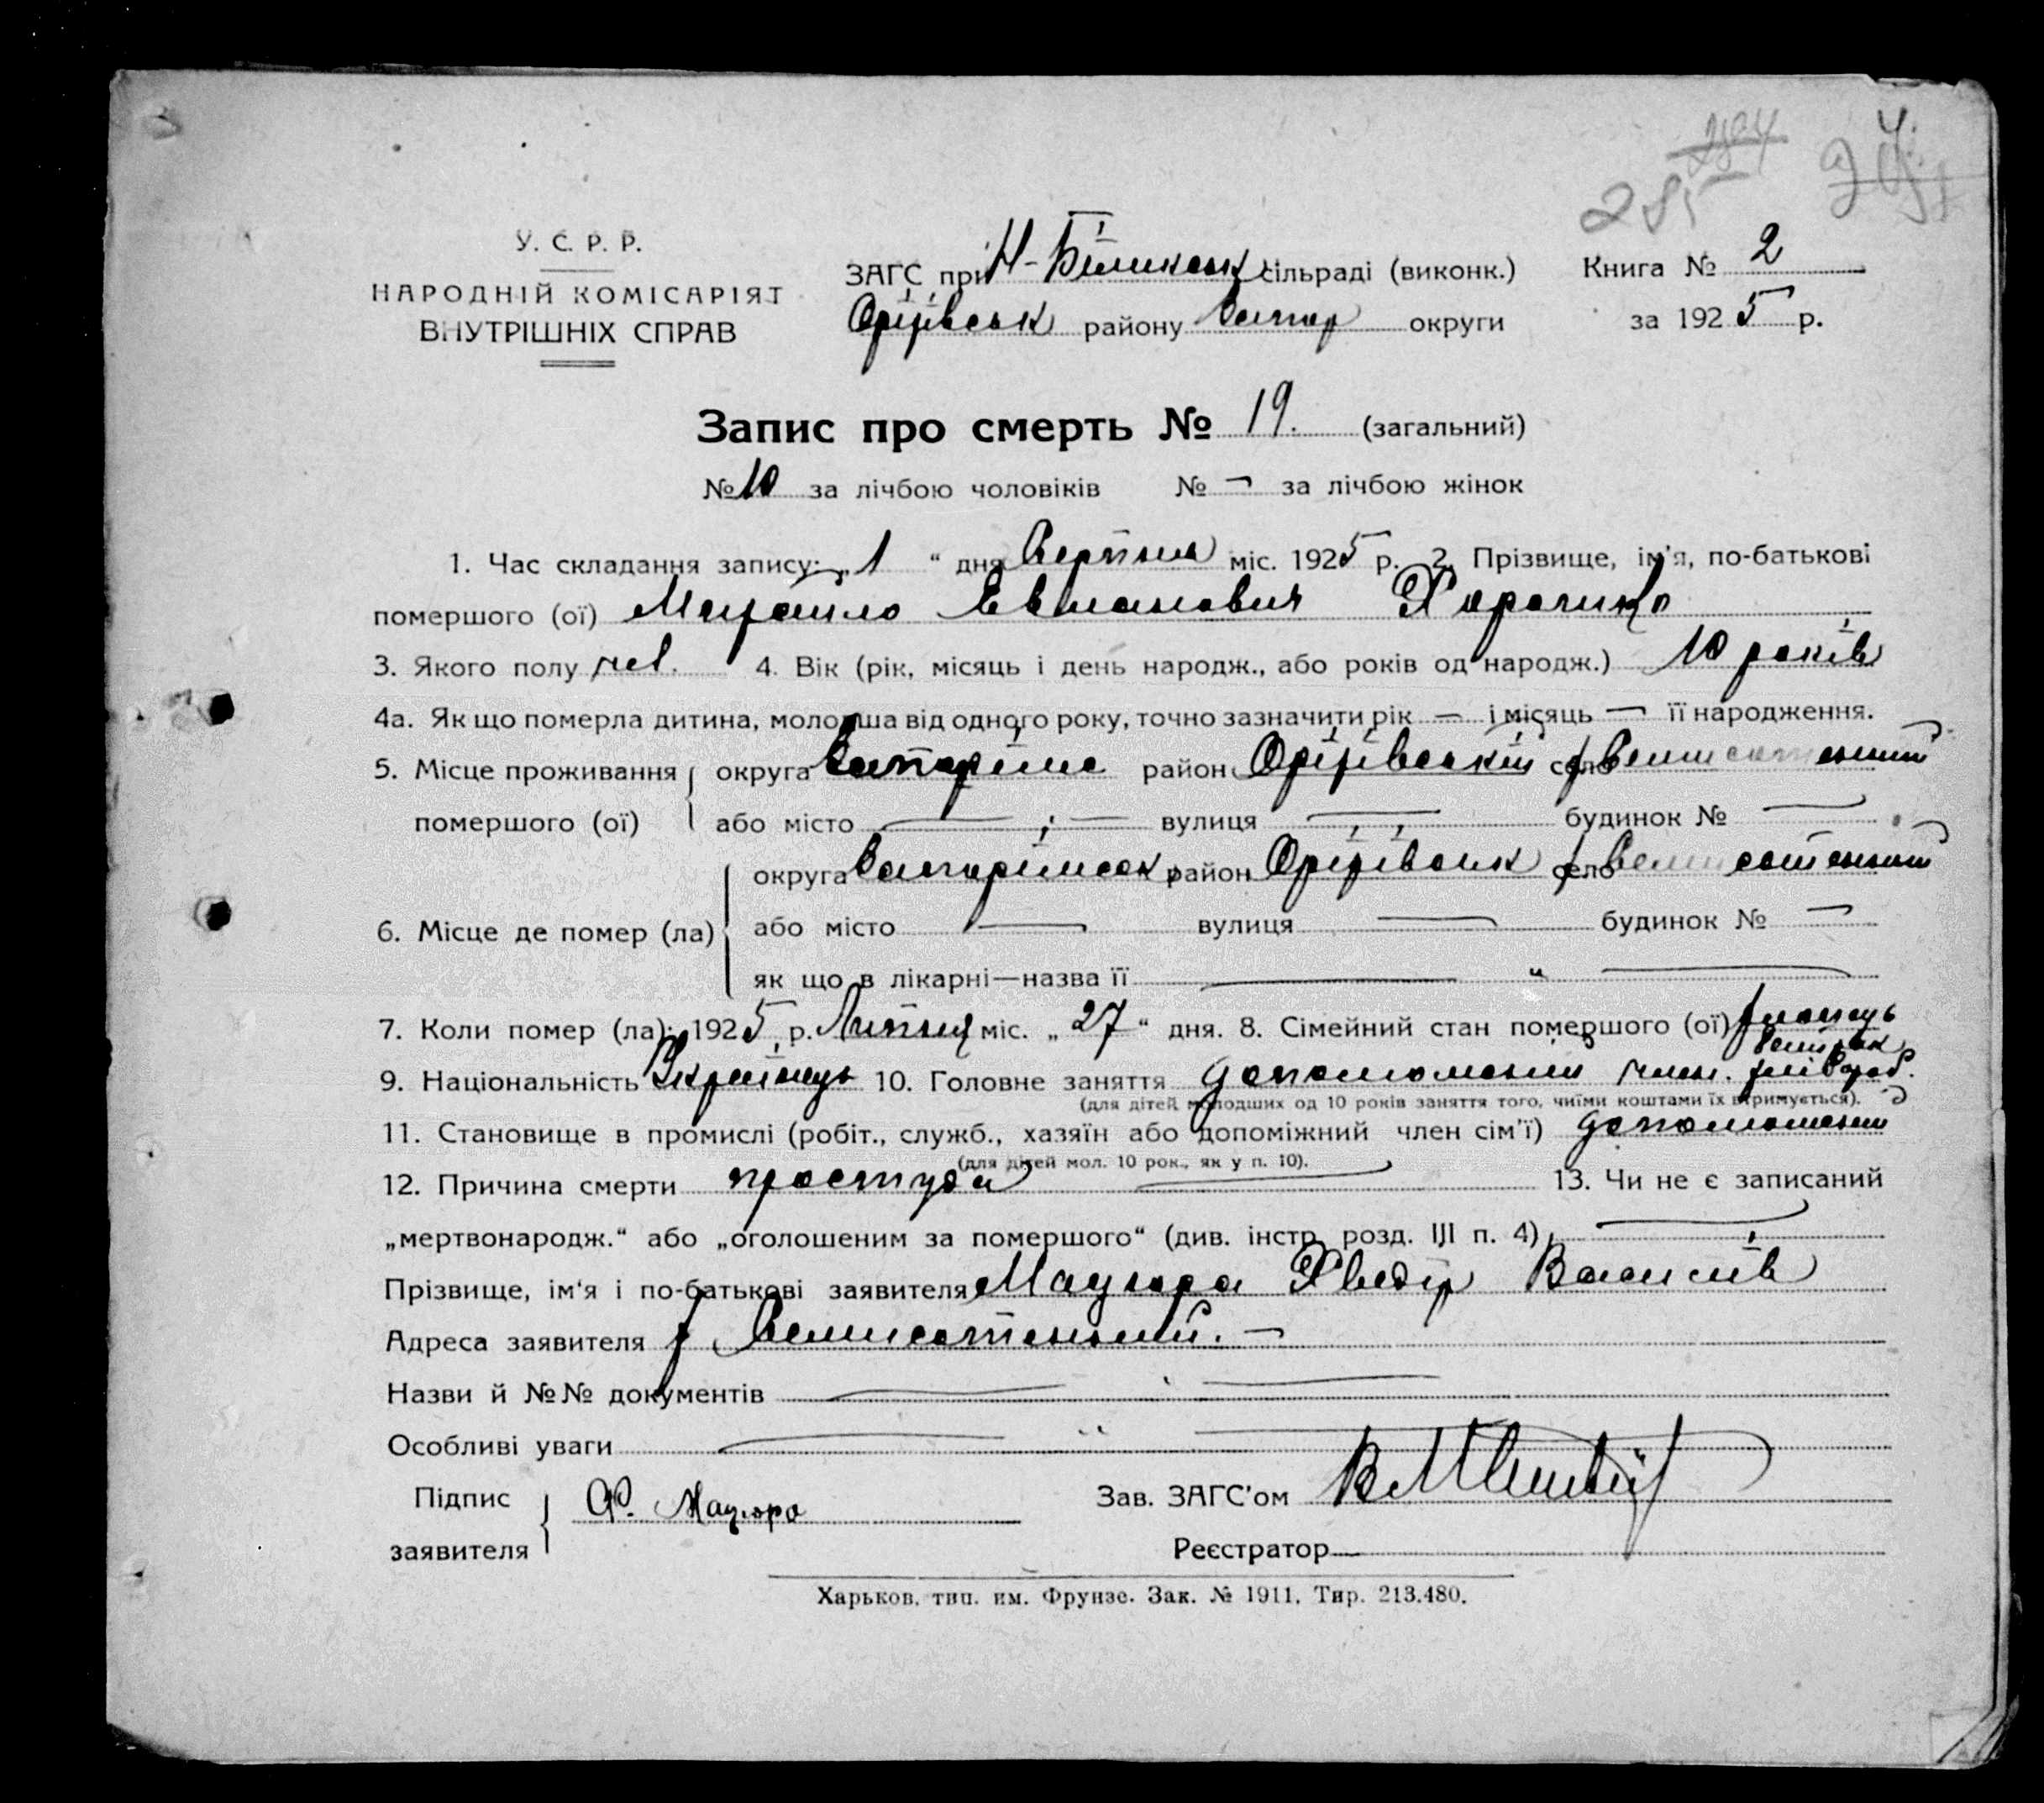 285
У. С. Р. Р.
НАРОДНІЙ КОМІСАРІЯТ
ВНУТРІШНІХ СПРАВ
ЗАГС при сільраді (виконк.)
Оріхівськ району Запор округи
Книга № 2
за 1925 р.
Запис про смерть № 19. (загальний)
№ 10 за лічбою чоловіків № — за лічбою жінок
1. Час складання запису: „1“ дня Серпня міс. 1925 р. 2. Прізвище, ім'я, по-батькові
помершого (ої) Михайло
3. Якого полу чол. 4. Вік (рік, місяць і день народж., або років од народж.) 10 років
4а. Як що померла дитина, молодша від одного року, точно зазначити рік — і місяць — її народження.
5. Місце проживання округа район Оріхівський село
помершого (ої) або місто — вулиця — будинок № —
округа район Оріхівськ село
6. Місце де помер (ла) або місто — вулиця — будинок № —
як що в лікарні—назва її — „ —
7. Коли помер (ла): 1925 р. Липня міс. „27“ дня. 8. Сімейний стан помершого (ої)
9. Національність Українець 10. Головне заняття
(для дітей молодших од 10 років заняття того, чиїми коштами їх втримується).
11. Становище в промислі (робіт., служб., хазяїн або допоміжний член сім'ї)
(для дітей мол. 10 рок., як у п. 10).
12. Причина смерти простуда — 13. Чи не є записаний
„мертвонародж.“ або „оголошеним за помершого“ (див. інстр. розд. III п. 4) —
Прізвище, ім'я і по-батькові заявителя Мацюра Хведір Василів
Адреса заявителя
Назви й №№ документів —
Особливі уваги —
Підпис
заявителя Ф. Мацюра
Зав. ЗАГС'ом
Реєстратор —
Харьков, тип. им. Фрунзе. Зак. № 1911. Тир. 213.480.